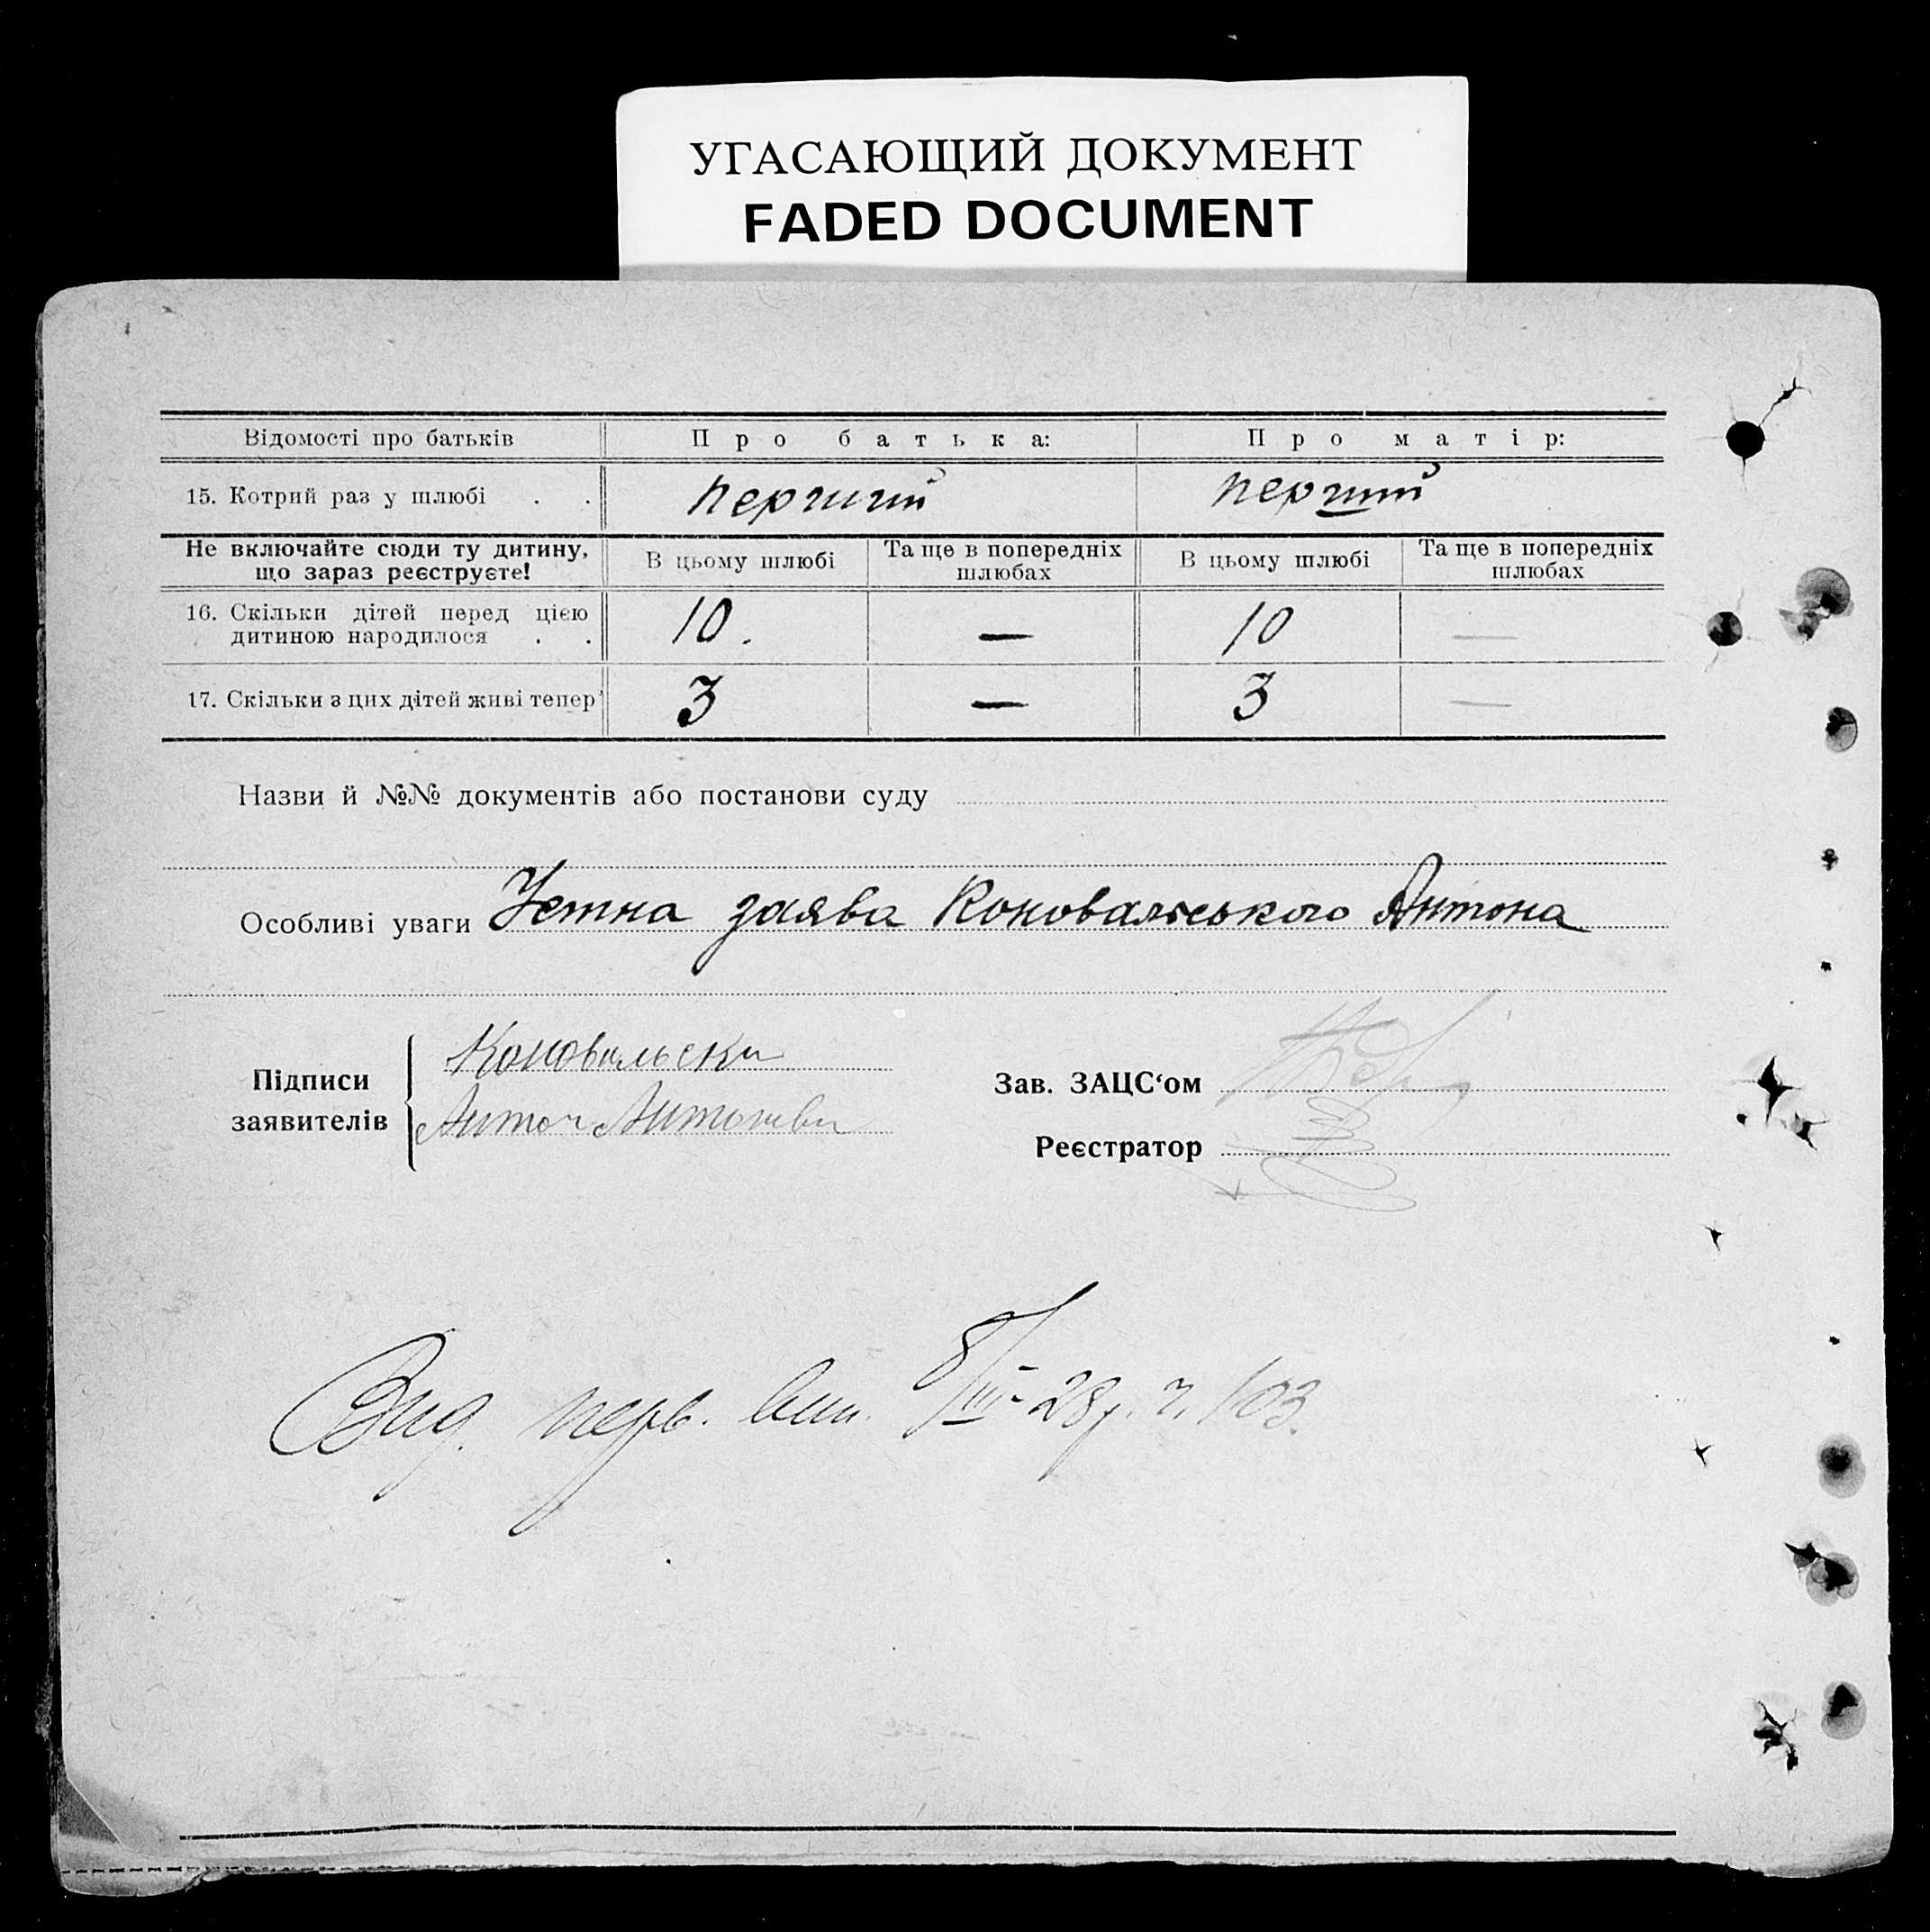 УГАСАЮЩИЙ ДОКУМЕНТ
FADED DOCUMENT
Відомості про батьків Про батька: Про матір:
15. Котрий раз у шлюбі . . перший перший
Не включайте сюди ту дитину, що зараз реєструєте! В цьому шлюбі Та ще в попередніх шлюбах В цьому шлюбі Та ще в попередніх шлюбах
16. Скільки дітей перед цією дитиною народилося . . 10. — 10 —
17. Скільки з цих дітей живі тепер 3 — 3 —
Назви й №№ документів або постанови суду
Особливі уваги Устна заява Коновальського Антона
Підписи заявителів
Коновальски
Антон Антонови
Зав. ЗАЦС‘ом
Реєстратор
Вид. перв. вип. 8/III-28р. ч. 103.